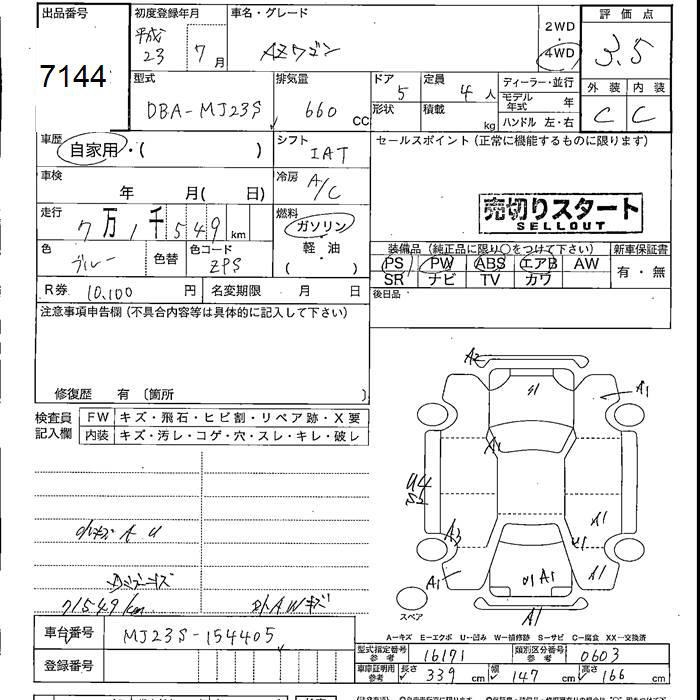 出品番号
7144
初度登録年月
平成
23 7月
車名・グレード
AZワゴン
2WD
・
4WD
評価点
3.5
外装 内装
C C
型式
DBA-MJ23S
排気量
660 cc
ドア 5
形状
定員 4人
積載 kg
ディーラー・並行
モデル年式 年
ハンドル 左・右
車歴
自家用・( )
シフト
IAT
セールスポイント(正常に機能するものに限ります)
車検
年 月( 日)
冷房
A/C
売切りスタート
SELLOUT
走行
7万1千549 km
燃料
ガソリン
軽・油
( )
色
ブルー
色替
色コード
ZPS
装備品(純正品に限り○をつけて下さい)
新車保証書
PS PW ABS エアB AW
SR ナビ TV カワ
有・無
R券 10,100 円
名変期限 月 日
後日品
注意事項申告欄(不具合内容等は具体的に記入して下さい)
修復歴 有〔箇所 〕
検査員
記入欄
FW キズ・飛石・ヒビ割・リペア跡・X要
内装 キズ・汚レ・コゲ・穴・スレ・キレ・破レ
A2
A1
A1
U4
A3
A1
U1
A1
A1
A1
A1
小キズ A U
71549km
スペア
A-キズ E-エクボ U-凹み W-補修跡 S-サビ C-腐食 XX-交換済
車台番号
MJ23S-154405
登録番号
型式指定番号
参考
16171
類別区分番号
参考
0603
車庫証明用
参考
長さ 339 cm
幅 147 cm
高さ 166 cm